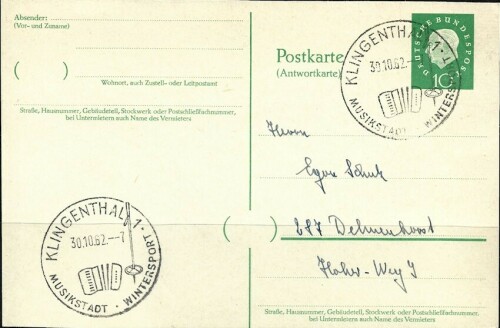 Absender:
(Vor- und Zuname)
Wohnort, auch Zustell- oder Leitpostamt
Straße, Hausnummer, Gebäudeteil, Stockwerk oder Postschließfachnummer,
bei Untermietern auch Name des Vermieters
KLINGENTHAL 1
30.10.62.--7
MUSIKSTADT · WINTERSPORT
Postkarte
(Antwortkarte)
DEUTSCHE BUNDESPOST
10
KLINGENTHAL 1
30.10.62.
MUSIKSTADT · WINTERSPORT
Herrn
Egon Schulz
287 Delmenhorst
Straße, Hausnummer, Gebäudeteil, Stockwerk oder Postschließfachnummer,
bei Untermietern auch Name des Vermieters